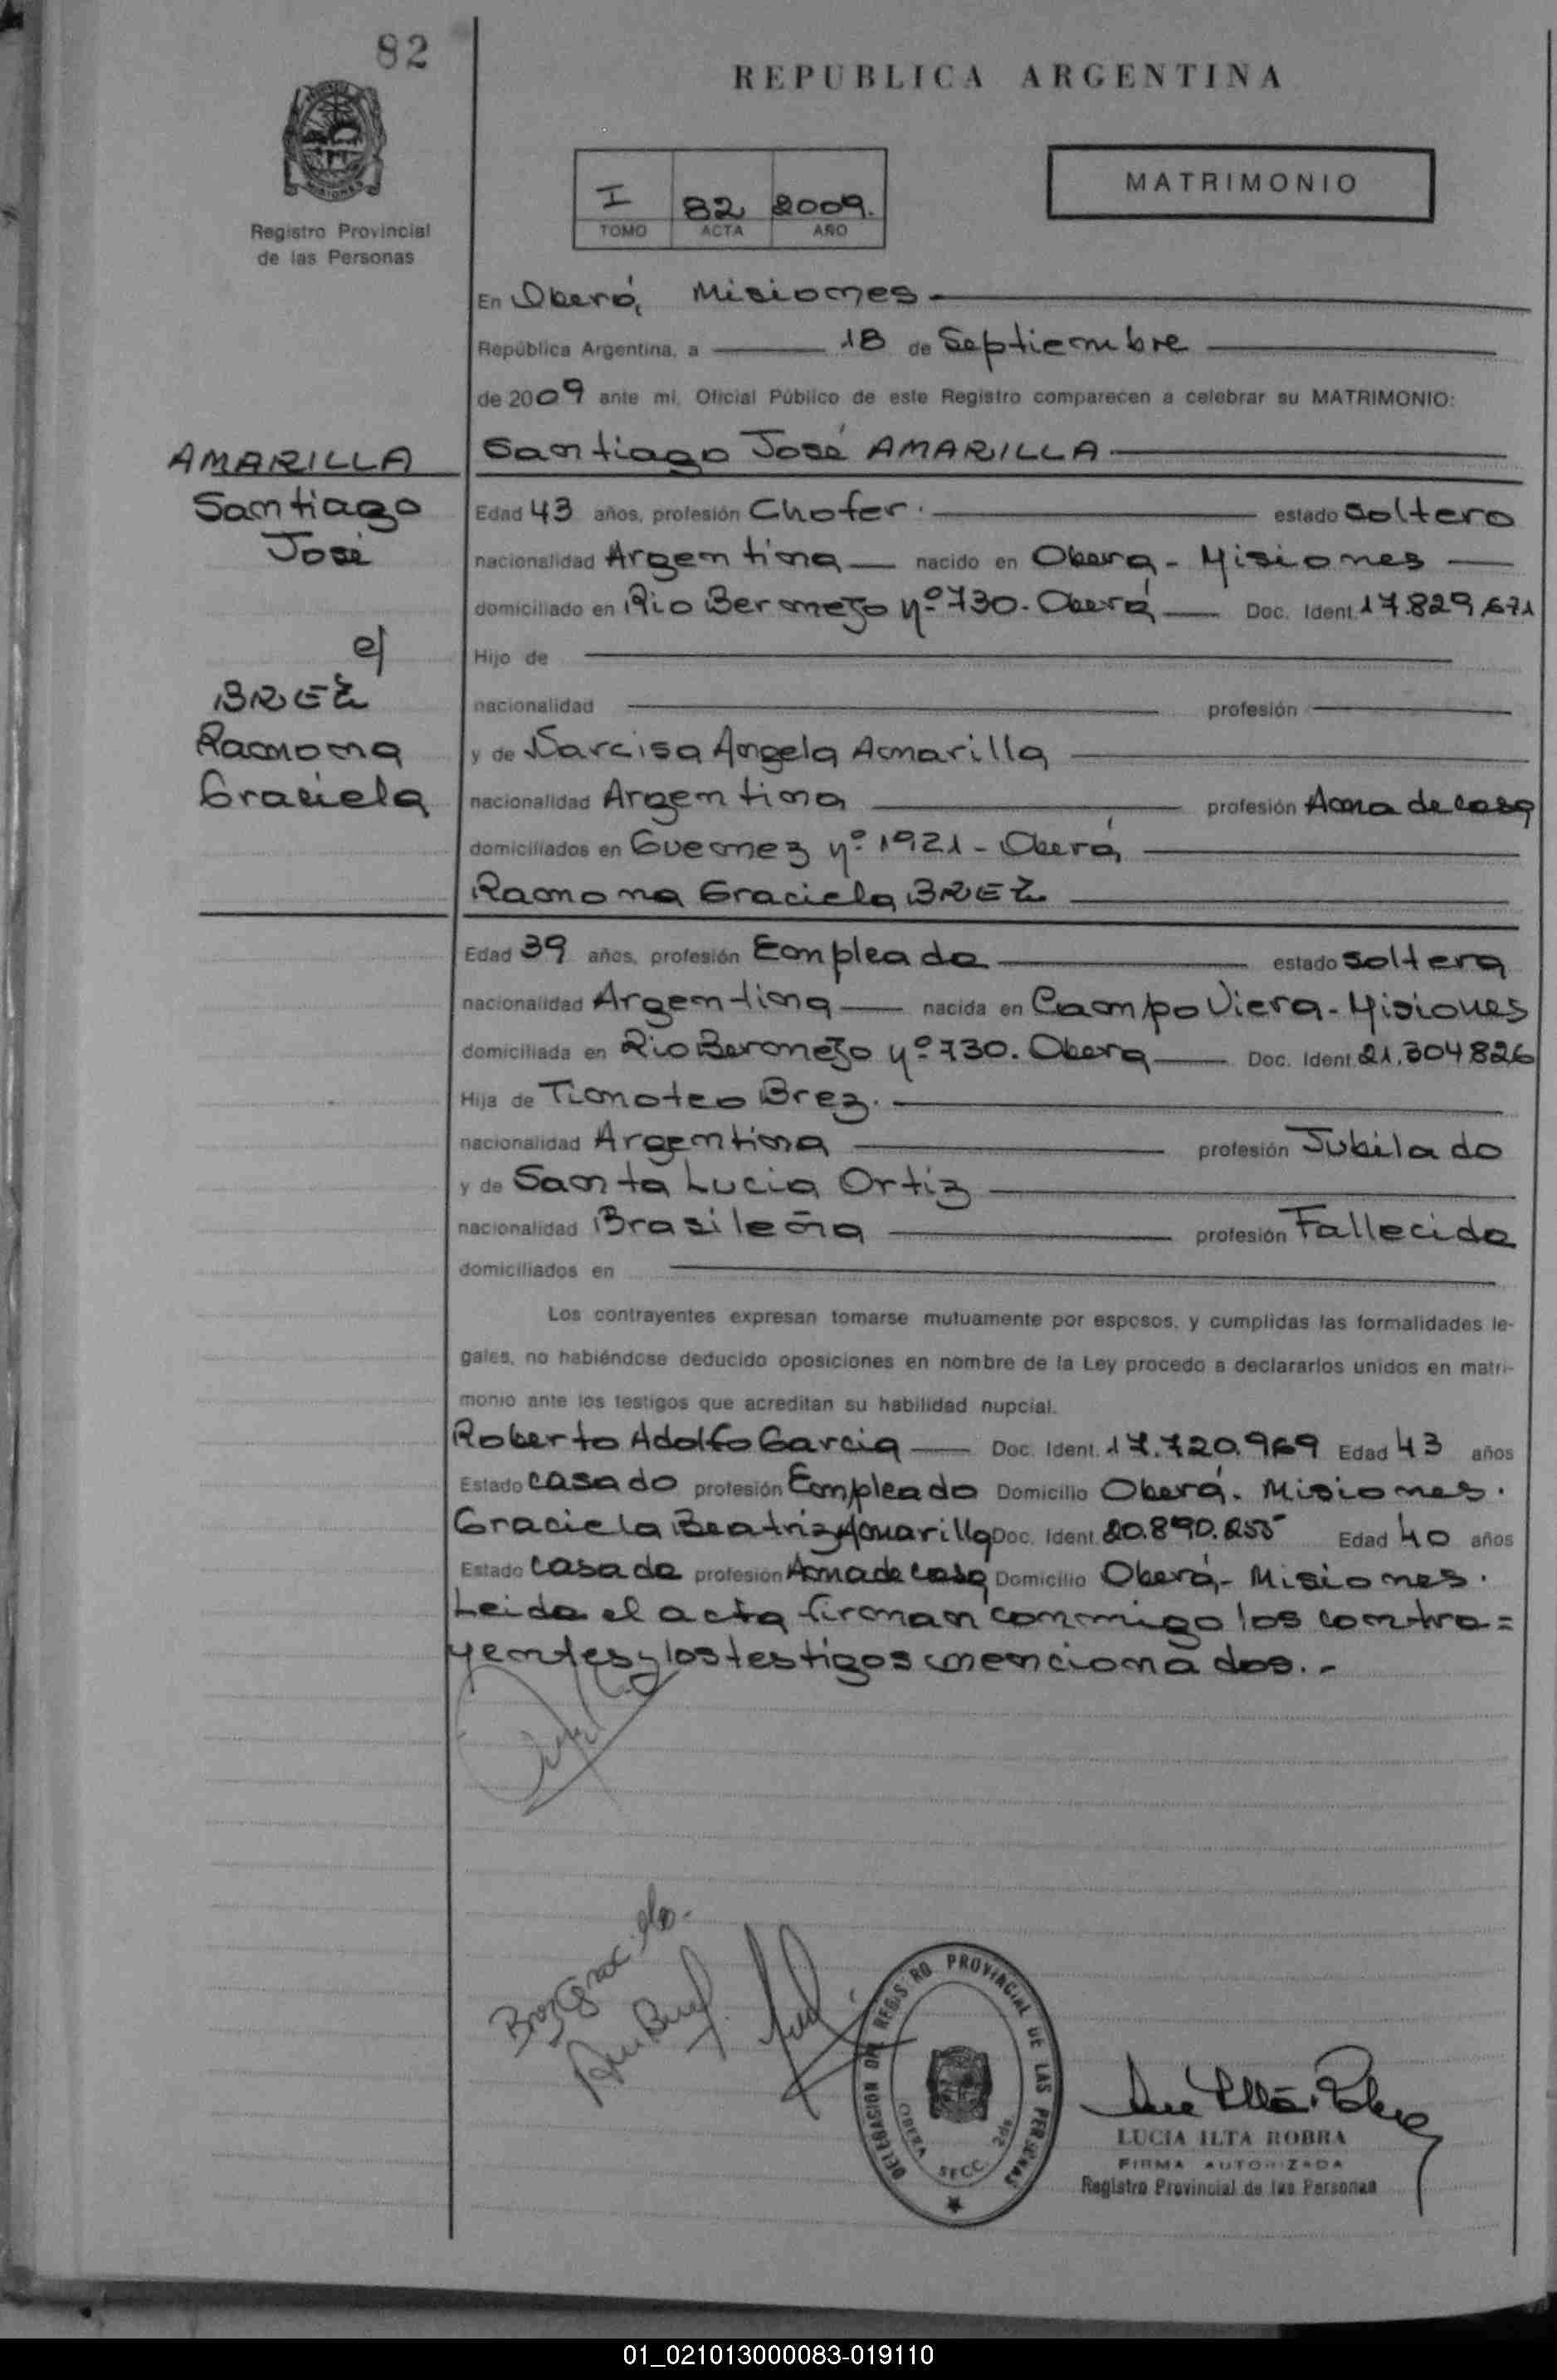 82
REPUBLICA ARGENTINA
MISIONES
Registro Provincial
de las Personas
I 82 2009.
TOMO ACTA AÑO
MATRIMONIO
En Oberá, Misiones
República Argentina, a 18 de Septiembre
de 2009 ante mi, Oficial Público de este Registro comparecen a celebrar su MATRIMONIO:
AMARILLA
Santiago
José
c/
BREZ
Ramona
Graciela
Santiago José AMARILLA
Edad 43 años, profesión Chofer. estado soltero
nacionalidad Argentina nacido en Oberá - Misiones
domiciliado en Rio Bermejo Nº 730. Oberá Doc. Ident. 17.829.671
Hijo de
nacionalidad profesión
y de Narcisa Angela Amarilla
nacionalidad Argentina profesión Ama de casa
domiciliados en Guemez Nº 1921 - Oberá
Ramona Graciela BREZ
Edad 39 años, profesión Empleada estado soltera
nacionalidad Argentina nacida en Campo Viera - Misiones
domiciliada en Rio Bermejo Nº 730. Oberá Doc. Ident. 21.304.826
Hija de Timoteo Brez.
nacionalidad Argentina profesión Jubilado
y de Santa Lucia Ortiz
nacionalidad Brasileña profesión Fallecida
domiciliados en
Los contrayentes expresan tomarse mutuamente por esposos, y cumplidas las formalidades le-
gales, no habiéndose deducido oposiciones en nombre de la Ley procedo a declararlos unidos en matri-
monio ante los testigos que acreditan su habilidad nupcial.
Roberto Adolfo Garcia Doc. Ident. 17.720.969 Edad 43 años
Estado casado profesión Empleado Domicilio Oberá. Misiones.
Graciela Beatriz Amarilla Doc. Ident. 20.890.255 Edad 40 años
Estado casada profesión Ama de casa Domicilio Oberá - Misiones.
Leida el acta firman conmigo los contra=
yentes y los testigos mencionados.-
DELEGACION DEL REGISTRO PROVINCIAL DE LAS PERSONAS
OBERA SECC. 2da
LUCIA ILTA ROBRA
FIRMA AUTORIZADA
Registro Provincial de las Personas
01_021013000083-019110